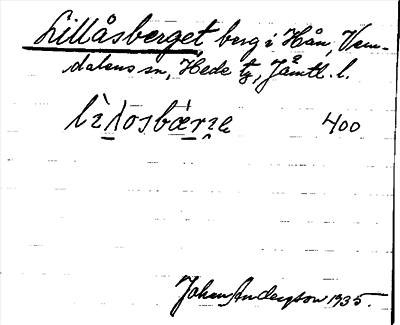 Lillåsberget berg i Hån, Vem-
dalens sn, Hede tg, Jämtl. l.
400
Johan Andersson 1935.